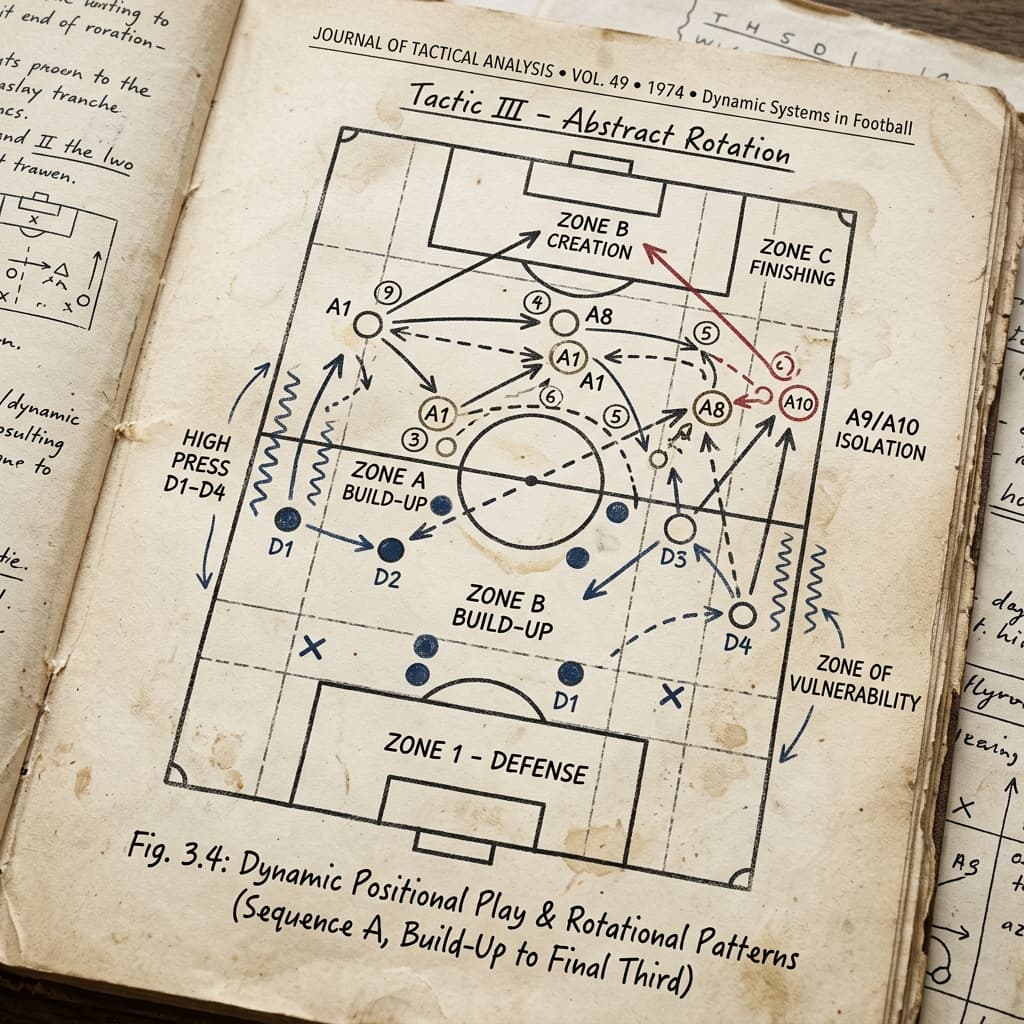 JOURNAL OF TACTICAL ANALYSIS • VOL. 49 • 1974 • Dynamic Systems in Football
Tactic III – Abstract Rotation
ZONE B
CREATION
ZONE C
FINISHING
9
A1
4
A8
5
A1
A1
6
A10
A8
A1
3
5
A9/A10
ISOLATION
HIGH
PRESS
D1–D4
ZONE A
BUILD–UP
D1
D2
D3
ZONE B
BUILD–UP
D4
X
D1
X
ZONE OF
VULNERABILITY
ZONE 1 – DEFENSE
Fig. 3.4: Dynamic Positional Play & Rotational Patterns
(Sequence A, Build-Up to Final Third)
it end of roration–
to the
tranche
II the two
X
X
X
/dynamic
to
T H S D I
X